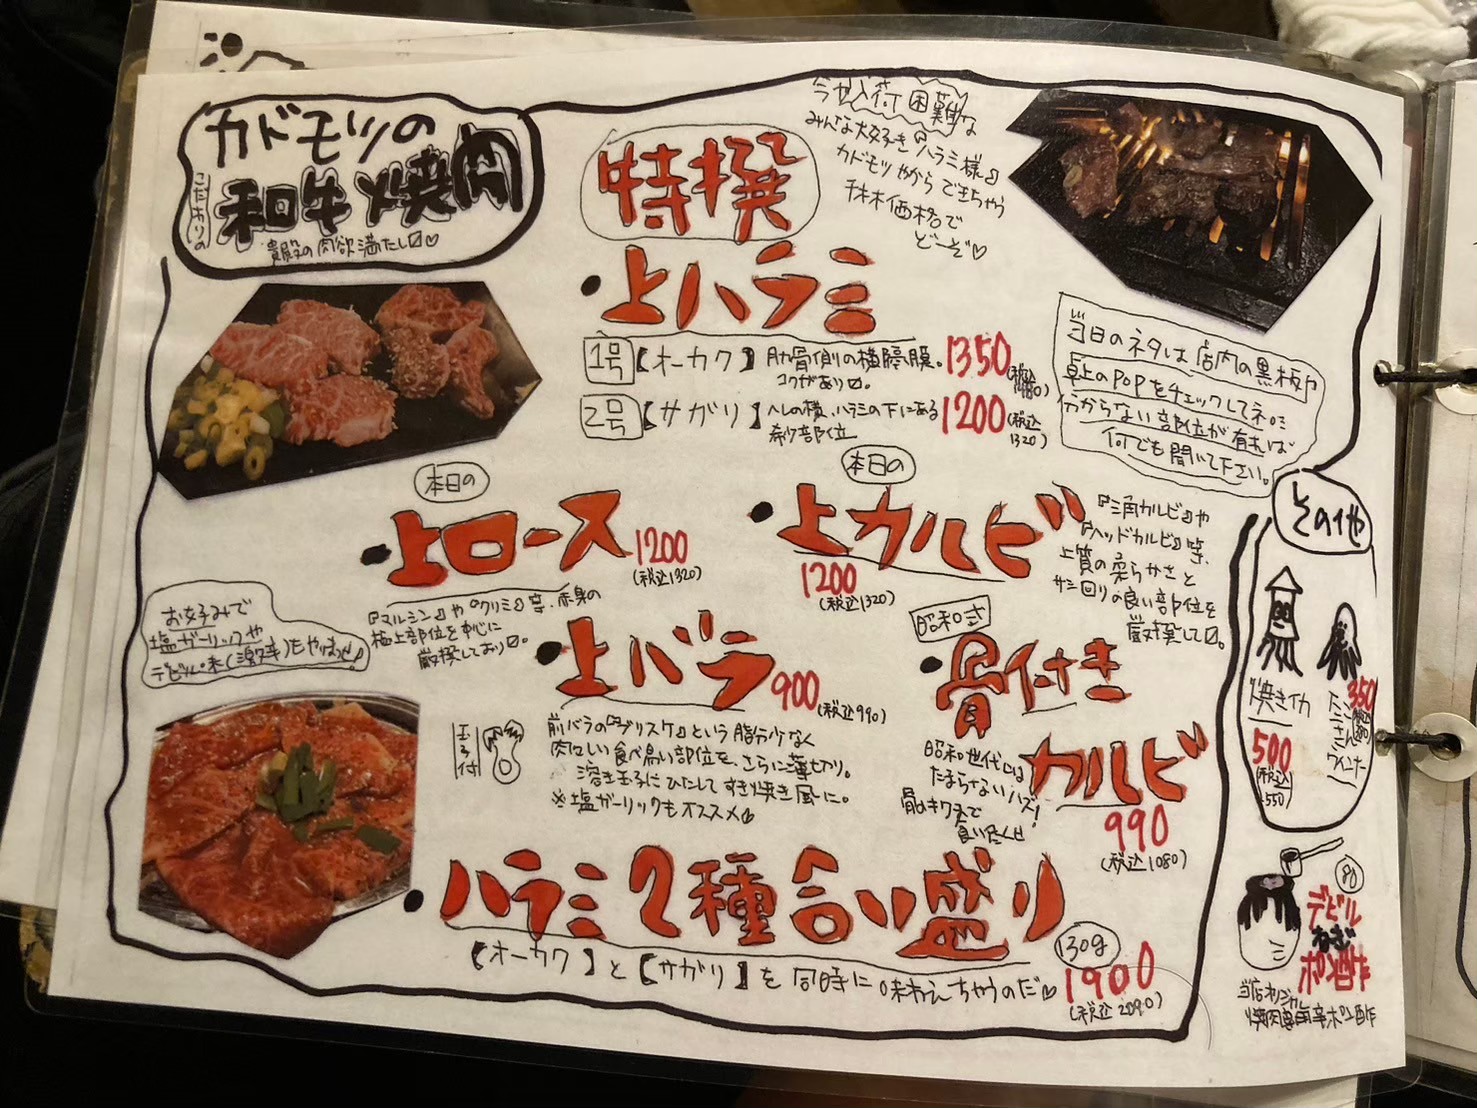 カドモツの
こだわりの
和牛焼肉
貴殿の肉欲満たし〼♡
特撰
今や入荷困難な
みんな大好き『ハラミ様』
カドモツやからできちゃう
株価格で
どーぞ♡
・上ハラミ
1号【オーカク】肋骨側の横隔膜。
コクがあり〼。
1350(税込
1480)
2号【サガリ】ヘレの横、ハラミの下にある
希少部位
1200(税込
1320)
当日のネタは店内の黒板や
卓上のPOPをチェックしてネ☺
分からない部位が有れば
何でも聞いて下さい。
本日の
・上ロース 1200
(税込1320)
『マルシン』や『クリミ』等、赤身の
極上部位を中心に
厳撰しており〼。
本日の
・上カルビ
1200
(税込1320)
『三角カルビ』や
『ヘッドカルビ』等、
上質の柔らかさと
サシ回りの良い部位を
厳撰して〼。
お好みで
塩ガーリックや
デビル味(激辛)もやりまっせ♪
・上バラ 900(税込990)
玉子付
前バラの『ブリスケ』という脂分少なく
肉々しい食べ易い部位を、さらに薄切り。
溶き玉子にひたしてすき焼き風に。
※塩ガーリックもオススメ♡
昭和式
・骨付き
カルビ
990
(税込1080)
昭和世代には
たまらないハズ!
骨のキワまで
食いたんせ
・ハラミ2種合い盛り
130g
1900
(税込2090)
【オーカク】と【サガリ】を同時に味わえちゃうのだ♡
その他
焼きイカ
500
(税込
550)
たこさん
ウインナー
350
デビル
ねぎ
ポン酢
当店オリジナル
焼肉専用辛ポン酢